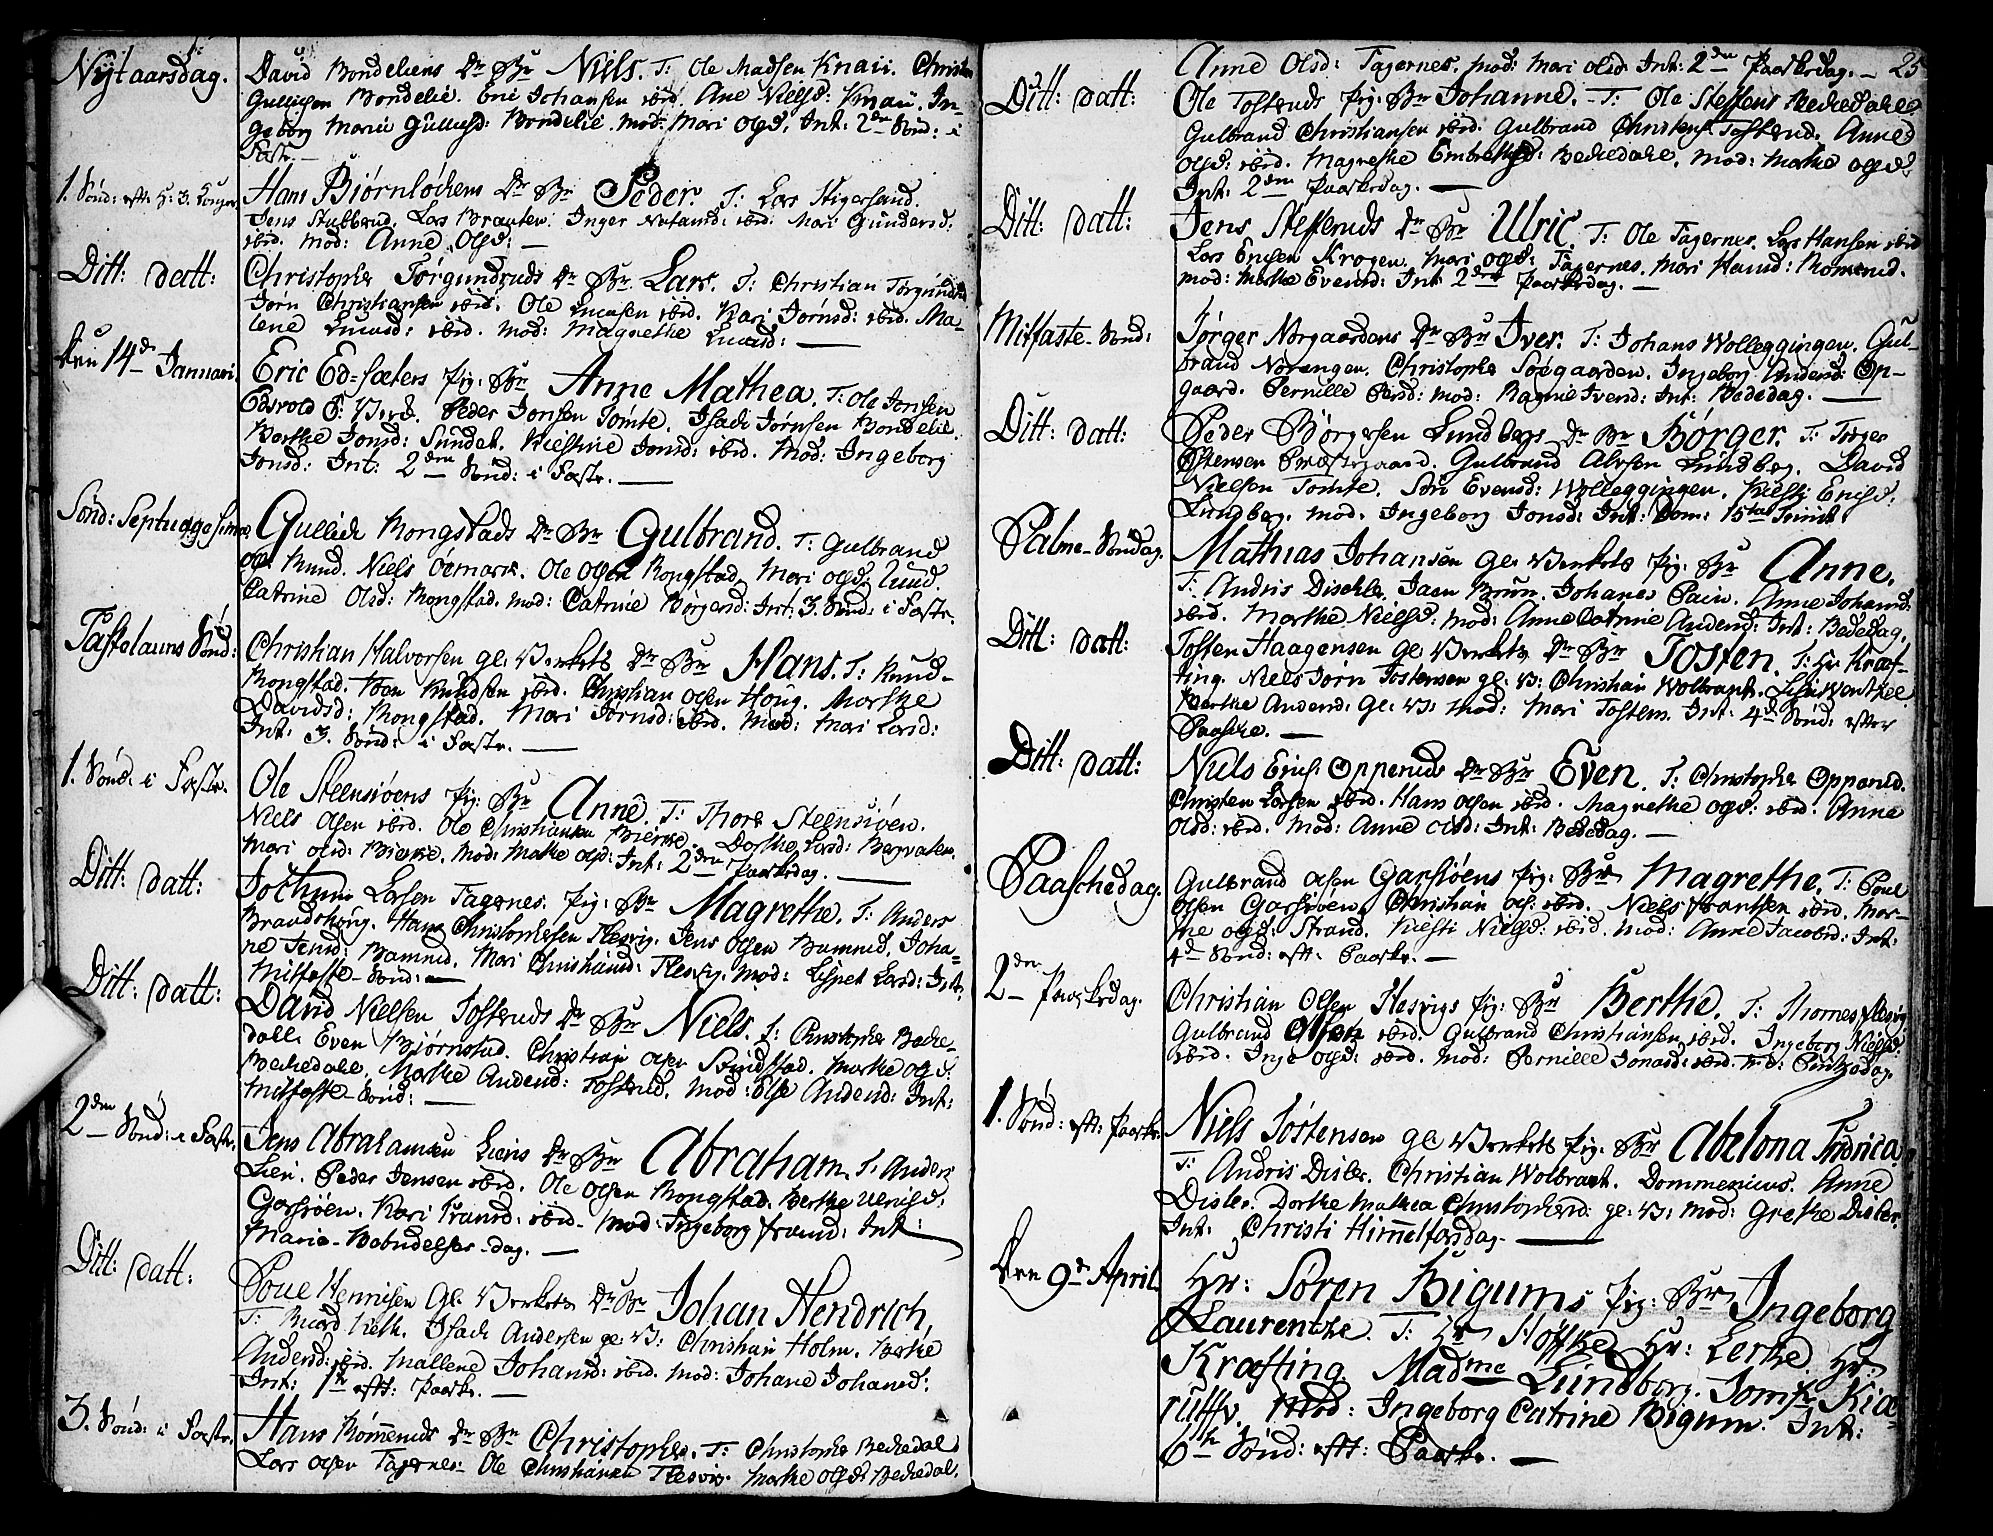 Nytaarsdag.
David Bondeliens Dr. Br. Niels. T: Ole Madsen Knaii. Christen
Gullichsen Bondelie. Eric Johansen ibid. Ane Nielsd: Knaii. In-
geborg Marie Gullichsd: Bondelie. Mod: Mari Olsd. Int: 2den Sönd: i
Fast. —
1. Sönd: eft: H: 3. Konger.
Hans Bjørnløchens Dr. Br. Peder. T: Lars Stigersand.
Jens Stubberud. Lars Braaten. Inger Ibid: Mari Gundersd:
ibid. Mod: Anne Olsd: —
Ditt: Datt:
Christopher Törgundruds Dr. Br. Lars. T: Christian Törgundrud
Jörn Christiansen ibid. Ole Lucasen ibid. Kari Jörnsd: ibid. Ma-
lene Lucasd: ibid. Mod: Magrethe Lucasd: —
Den 14de Januari.
Eric Ed-sæters Pig: Br. Anne Mathea. T: Ole Jensen
Edsvold P: Peder Jonsen Tomte. Isach Jörnsen Bondelie.
Berthe Jonsd: Sundet. Kiestine Jonsd: ibid. Mod: Ingeborg
Jonsd: Int: 2den Sönd: i Fast. —
Sönd: Septuagesima.
Gullich Rongstads Dr. Br. Gulbrand. T: Gulbrand
Ols: Niels Ole Olsen Rongstad. Mari Olsd: Lund.
Catrine Olsd: Rongstad. Mod: Catrine Börgersd: Int: 3. Sönd: i Fast.
Fastelauns Sönd:
Christian Halvorsen Gl: Verkets Dr. Br. Hans. T: Knud
Rongstad. Knudsen ibid. Christian Olsen Houg. Marthe
Davidsd: Rongstad. Mari Jörnsd: ibid. Mod: Mari Larsd:
Int: 3. Sönd: i Fast. —
1. Sönd: i Fast.
Ole Steensiöens Pig: Br. Anne. T: Thore Steensiöen.
Niels Olsen ibid. Ole Christiansen Bierke. Dorthe Larsd:
Mari Olsd: Bierke. Mod: Marthe Olsd: Int: 2den Paaskedag. —
Ditt: Datt:
Jochum Larsen Tagernes. Pig: Br. Magrethe. T: Anders
Brandskoug. Hans Christophersen Flesvig. Jens Olsen Johan-
ne Jensd: Mari Christiansd: Flesvig. Mod: Lispet Larsd: Int:
Midfaste-Sönd: —
Ditt: Datt:
David Nielsen Tosteruds Dr. Br. Niels. T: Christopher Beche-
dall. Even Björnstad. Christian Olsen Svindstad. Marthe Olsd:
Bechedale. Marthe Andersd: Tosterud. Mod: Else Andersd: Int:
Midfaste-Sönd: —
2den Sönd: i Fast.
Jens Abrahamsen Liens Dr. Br. Abraham. T: Anders
Lien. Peder Jensen ibid. Ole Olsen Rongstad. Berthe Ulrichsd:
Garsiöen. Kari Fransd: ibid. Mod: Ingeborg Int:
Mariæ-Bebudelses-dag. —
Ditt: Datt:
Poul Henrisen Gl: Verkets Dr. Br. Johan Hendrich,
T: Isach Andersen gl: V: Christian Holm. Berthe
Andersd: ibid. Mallene Johansd: ibid. Mod: Johane Johansd:
Int: 1te eft: Paaske. —
3. Sönd: i Fast.
Hans Römmeruds Dr. Br. Christopher. T: Christopher Bechedal
Lars Olsen Tagernes. Ole Christiansen Flesvig. Marthe Olsd: Bechedal.
25
Anne Olsd: Tagernes. Mod: Mari Olsd: Int: 2den Paaskedag. —
Ditt: Datt:
Ole Tosteruds Pig: Br. Johanne. T: Ole Steffens Bechedale
Gulbrand Christiansen ibid. Gulbrand Christens: Tosterud. Anne
Olsd: ibid. Magrethe Embrethsd: Bechedale. Mod: Marthe Olsd:
Int: 2den Paaskedag. —
Ditt: Datt:
Jens Stefferuds Dr. Br. Ulric. T: Ole Tagernes. Lars Hansen ibid
Lars Ericsen Krogen. Mari Olsd: Tagernes. Mari Römerud.
Mod: Marthe Evensd: Int: 2den Paaskedag. —
Mitfaste-Sönd:
Jörger Norgaardens Dr. Br. Iver. T: Johans Wolleggingen. Gul-
brand Norengen. Christopher Söegaarden. Ingeborg Andersd: Op-
gaard. Pernille Persd: Mod: Ragnie Iversd: Int: Bededag. —
Ditt: Datt:
Peder Börgersen Lundbergs Dr. Br. Börger. T: Törger
Östensen Præstegaard. Gulbrand Alvsen Lundberg. David
Nielsen Tomte. Siri Evensd: Wolleggingen. Kiesti Ericsd:
Lundberg. Mod: Ingeborg Jonsd: Int: Dom: 15ta Trinit.
Palme-Söndag.
Mathias Johansen Gl: Verkets Pig: Br. Anne.
T: Andris Dischler. Jaen Brun. Johanes Pain. Anne Johansd:
ibid. Marthe Nielsd: Mod: Anne Catrine Andersd: Int: Bededag.
Ditt: Datt:
Tosten Haagensen Gl: Verkets Dr. Br. Tosten. T: Hr. Kræf-
ting. Niels Jörn Tostensen gl: V: Christian Wolbrant. Lisa Wentzel
Berthe Andersd: Gl: V: Mod: Mari Tostens. Int: 4de Sönd: efter
Paasche. —
Ditt: Datt:
Niels Erics: Opperuds Dr. Br. Even. T: Christopher Opperud.
Christen Larsen ibid. Hans Olsen ibid. Magrethe Olsd: ibid. Anne
Olsd: ibid. Mod: Anne Olsd: Int: Bededag. —
Paaschedag.
Gulbrand Olsen Garsiöens Pig: Br. Magrethe. T: Poul
Olsen Garsiöen. Christian Ols: ibid. Niels ibid. Mar-
the Olsd: Strand. Kiesti Nielsd: ibid. Mod: Anne Jacobsd: Int:
4de Sönd: eft: Paaske. —
2den Paaskedag.
Christian Olsen Flesvigs Pig: Br. Berthe. T: Thomes Flesvig
Gulbrand Olsen ibid. Gulbrand Christiansen ibid. Ingeborg Nielsd:
ibid. Inge Olsd: ibid. Mod: Pernille Jonasd: ibid. Int: Pintzedag.
1. Sönd: eft: Paaske.
Niels Tostensen Gl: Verkets Pig: Br. Abelona Fredrica.
T: Andris Disler. Christian Wolbrant. Dommenicus. Anne
Disler. Dorthe Mathea Christophersd: gl: V: Mod: Grethe Disler.
Int: Christi Himmelfarsdag. —
Den 9de April.
Hr: Sören Bigums Pig: Br. Ingeborg
Laurentze. T: Hr. Höffke, Hr: Lerche. Hr:
Kræfting. Madme Lundberg. Jomfr. Kie-
rulffv. Mod: Ingeborg Catrine Bigum. Int:
6te Sönd: eft: Paaske. —